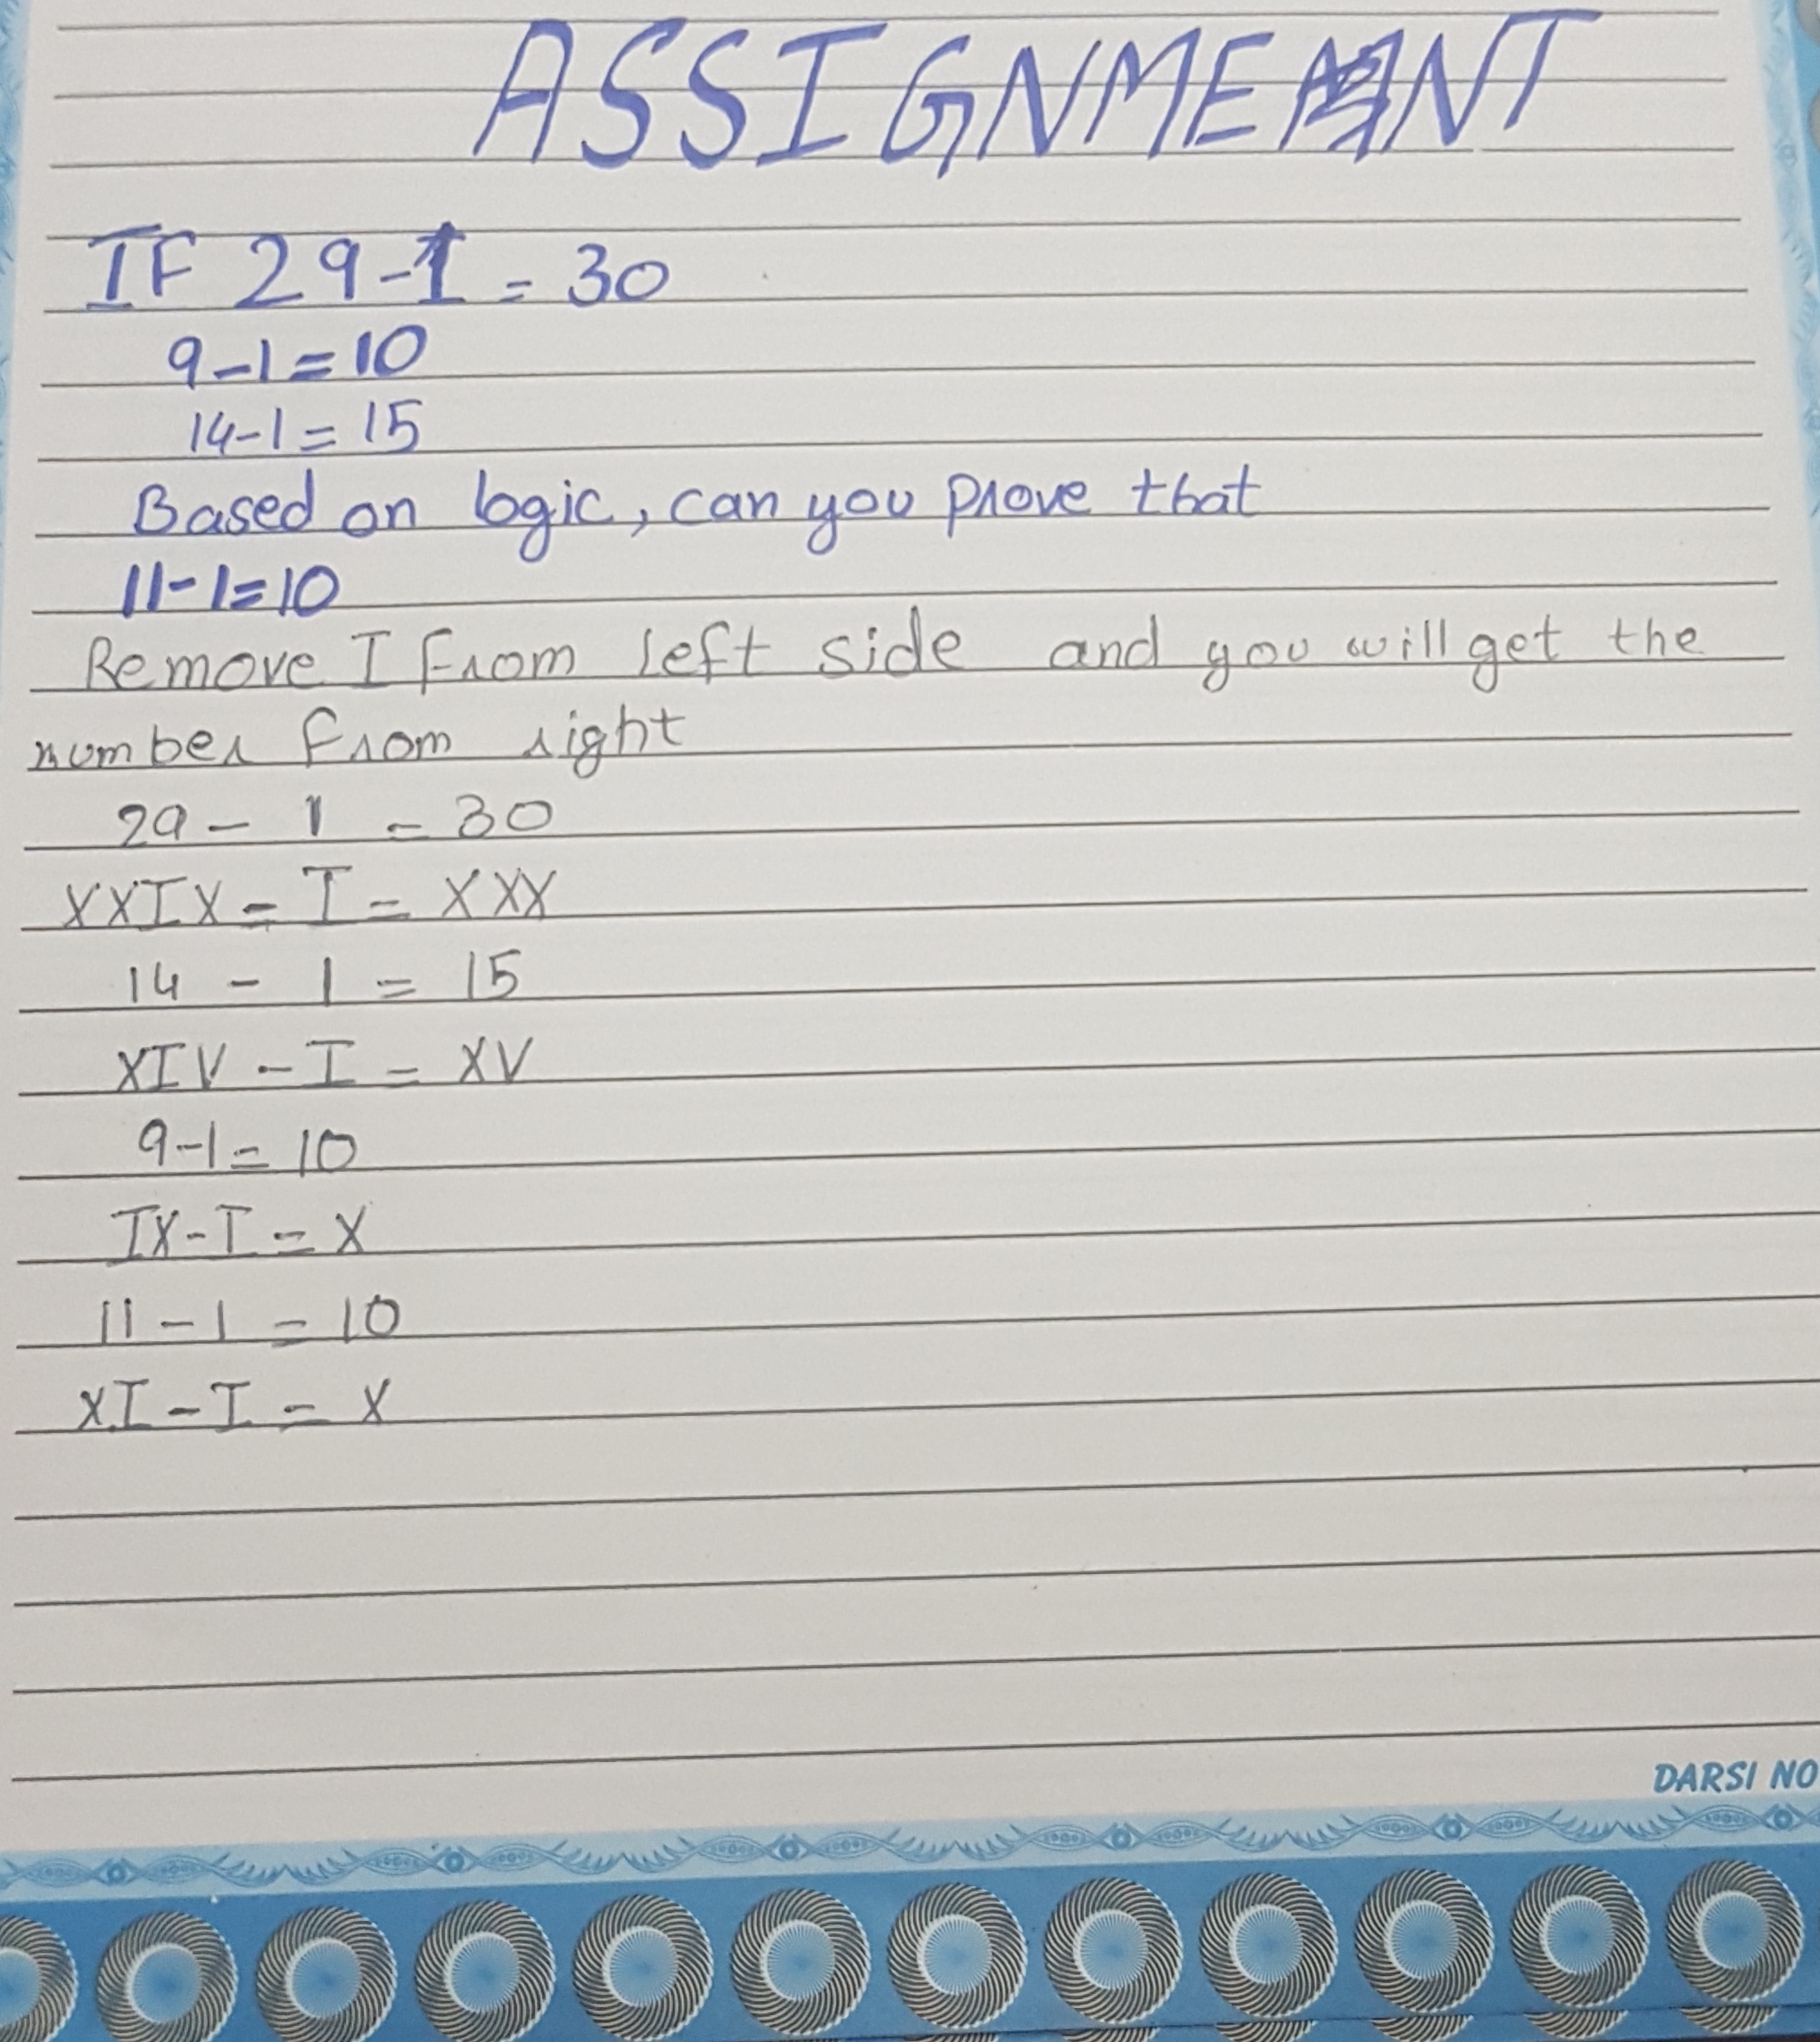 ASSIGNMENT
IF 29-1 = 30
9-1=10
14-1=15
Based on logic, can you prove that
11-1=10
Remove I From left side and you will get the
number from right
29 - 1 = 30
XXIX - I = XXX
14 - 1 = 15
XIV - I = XV
9-1= 10
IX-I = X
11-1 = 10
XI-I = X
DARSI NO